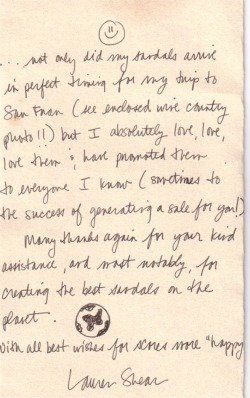 ... not only did my sandals arrive
in perfect timing for my trip to
San Fran (see enclosed wine country
photo!!) but I absolutely love, love,
love them & have promoted them
to everyone I know (sometimes to
the success of generating a sale for you!)
Many thanks again for your kind
assistance, and most notably, for
creating the best sandals on the
planet.
With all best wishes for scores more "happy
Lauren Shear